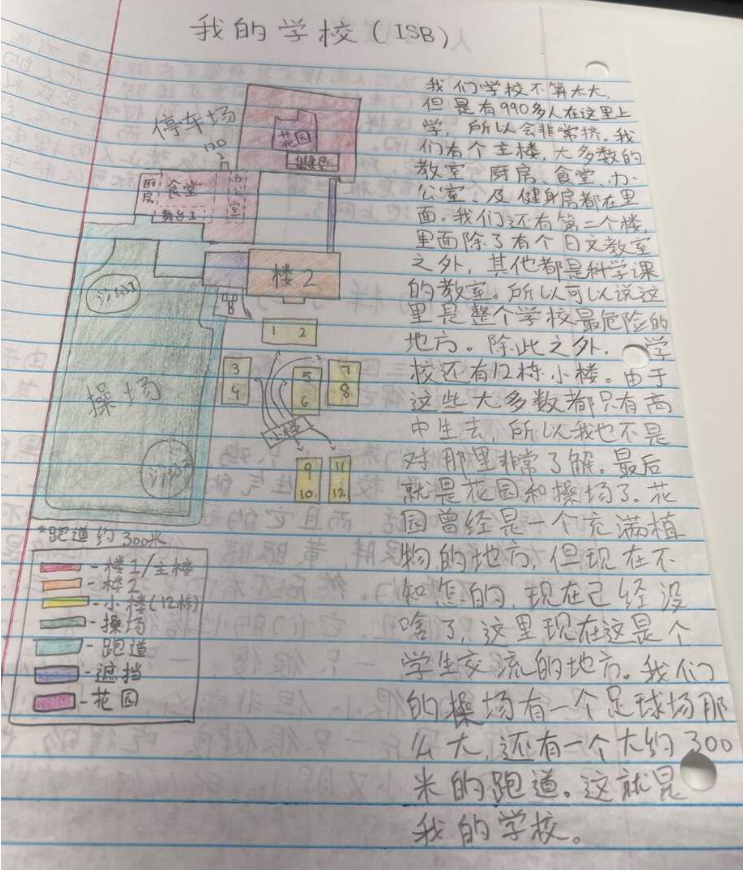 我的学校(ISB)
停车场
花园
厨房
食堂
办公室
舞台
楼2
操场
1 2
3
4
5
6
7
8
小楼
9
10
11
12
*跑道约300米
-楼1/主楼
-楼2
-小楼(12栋)
-操场
-跑道
-遮挡
-花园
我们学校不算太大,
但是有990多人在这里上
学,所以会非常挤。我
们有个主楼,大多数的
教室、厨房、食堂、办
公室、及健身房都在里
面。我们还有第二个楼,
里面除了有个日文教室
之外,其他都是科学课
的教室。所以可以说这
里是整个学校最危险的
地方。除此之外,学
校还有12栋小楼。由于
这些大多数都只有高
中生去,所以我也不是
对那里非常了解。最后
就是花园和操场了。花
园曾经是一个充满植
物的地方,但现在不
知怎的,现在已经没
啥了,这里现在这是个
学生交流的地方。我们
的操场有一个足球场那
么大,还有一个大约300
米的跑道。这就是
我的学校。